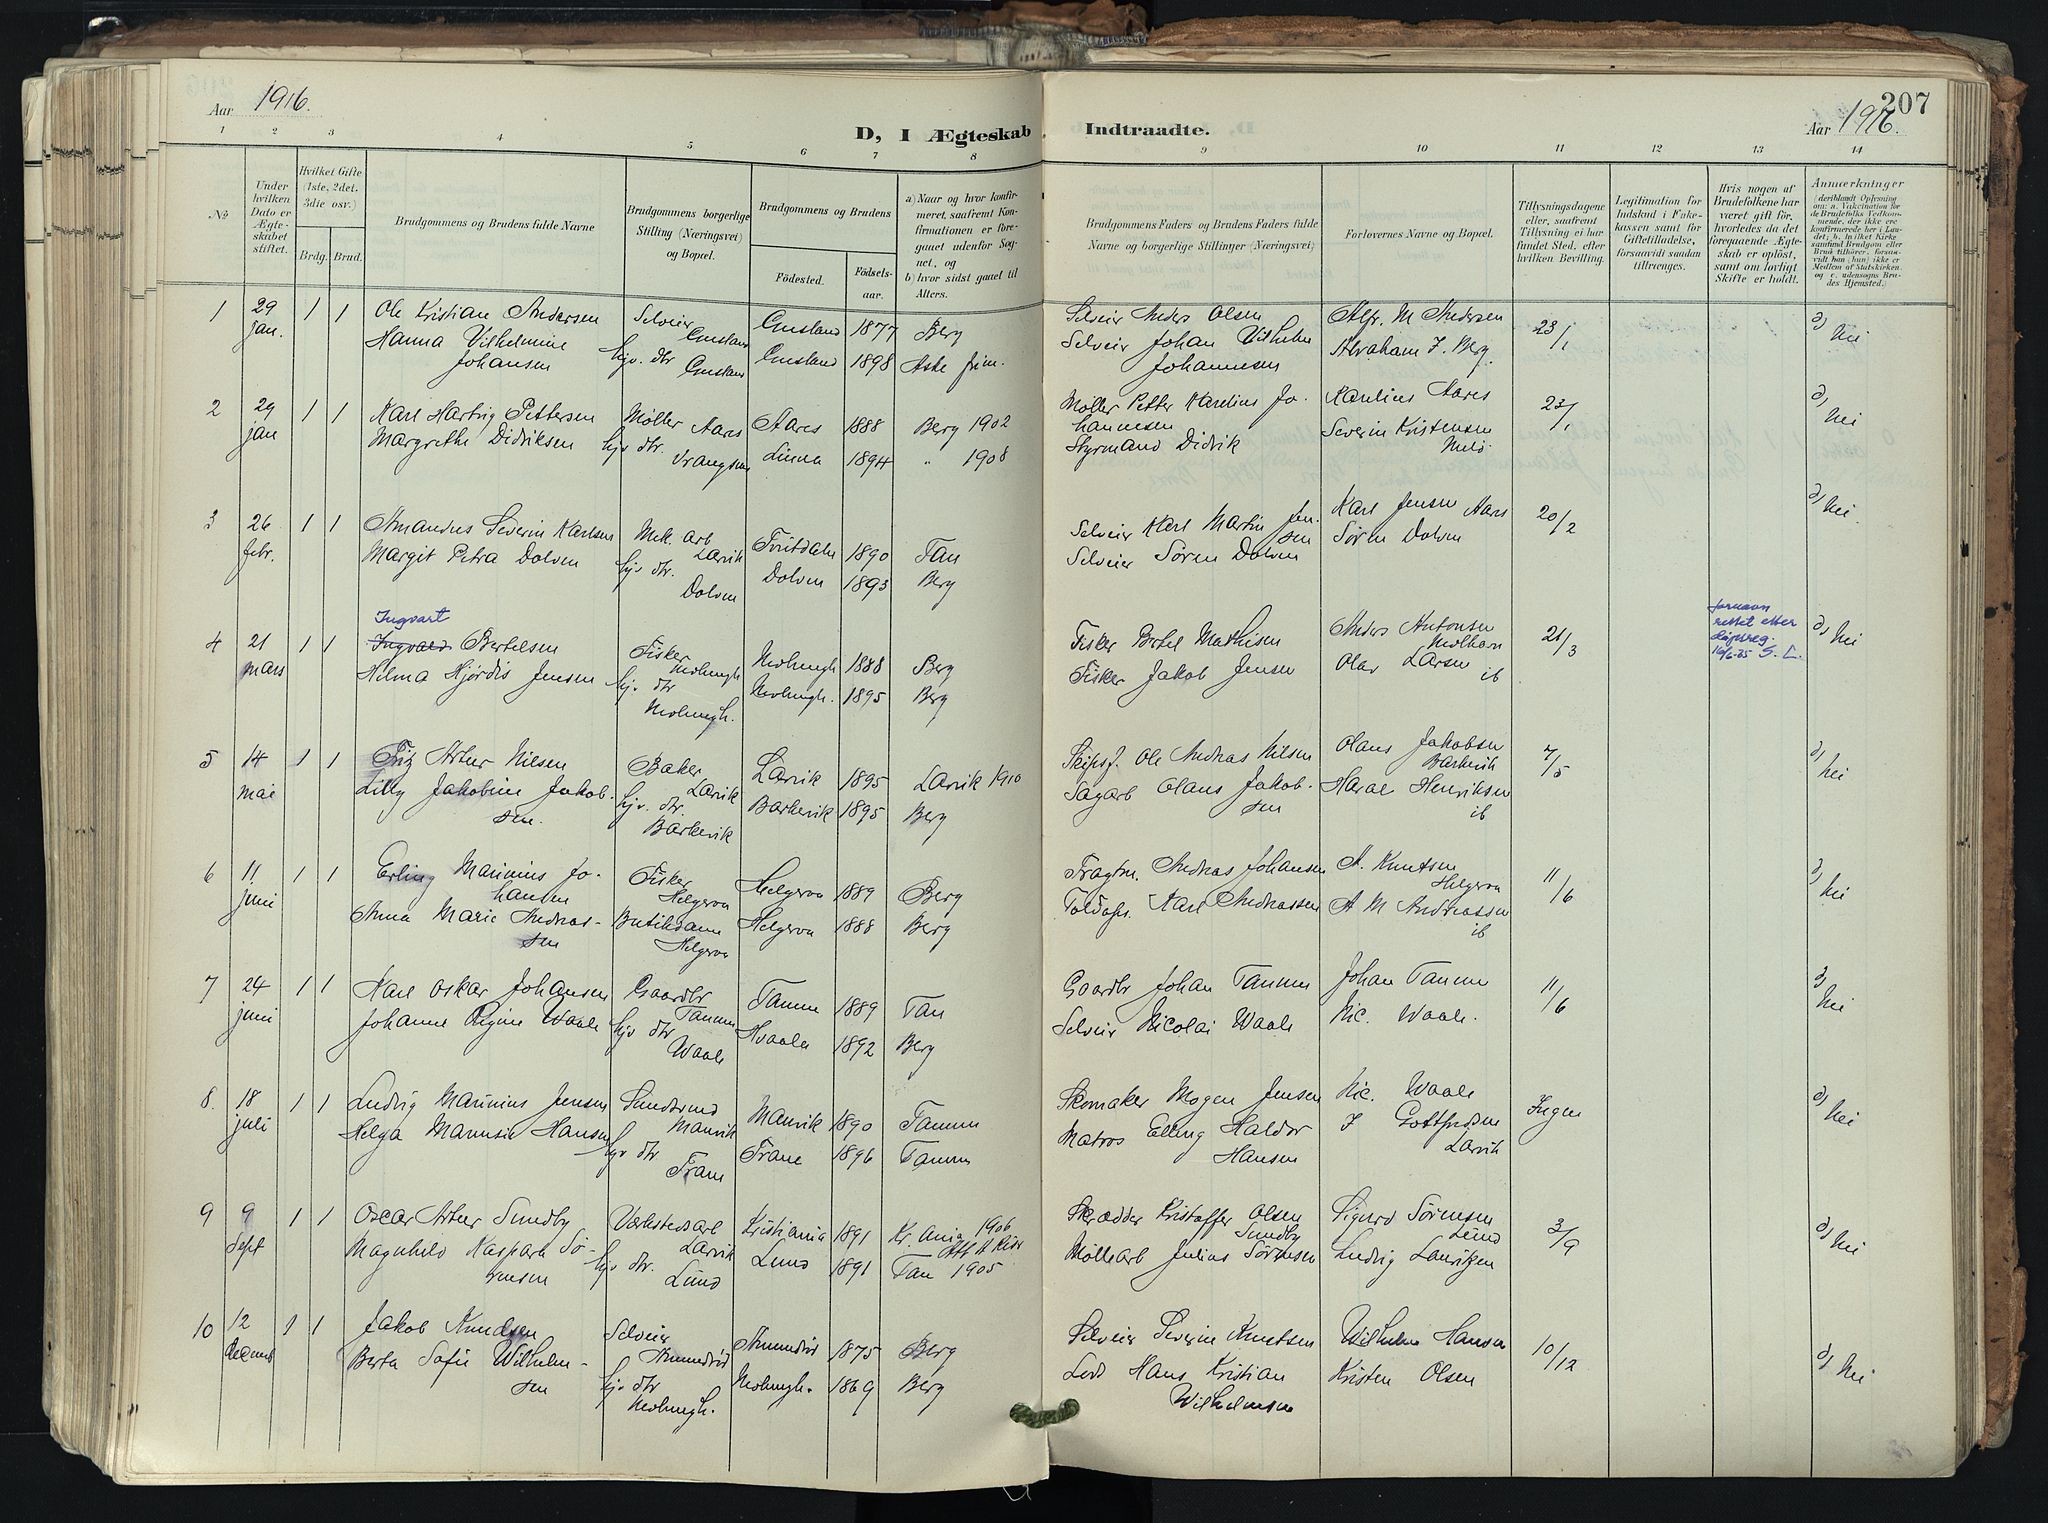 Aar 1916.
D, I Ægteskab
Indtraadte.
207
Aar 1916.
1 2 3 4 5 6 7 8 9 10 11 12 13 14
No
Under hvilken Dato er Ægteskabet stiftet.
Hvilket Gifte (1ste, 2det, 3die osv.)
Brdg. Brud.
Brudgommens og Brudens fulde Navne
Brudgommens borgerlige Stilling (Næringsvei) og Bopæl.
Brudgommens og Brudens
Fødested.
Fødselsaar.
a) Naar og hvor konfirmeret, saafremt Konfirmationen er foregaaet udenfor Sognet, og
b) hvor sidst gaaet til Alters.
Brudgommens Faders og Brudens Faders fulde Navne og borgerlige Stillinger (Næringsvei)
Forlovernes Navne og Bopæl.
Tillysningsdagene eller, saafremt Tillysning ei har fundet Sted, efter hvilken Bevilling.
Legitimation for Indskud i Fakekassen samt for Giftetilladelse, forsaavidt saadan tiltrænges.
Hvis nogen af Brudefolkene har været gift før, hvorledes da det foregaaende Ægteskab er opløst, samt om lovligt Skifte er holdt.
Anmærkninger
(deriblandt Oplysning om: a. Vakcination for de Brudefolks Vedkommende, der ikke ere konfirmerede her i Landet; b. hvilket Kirkesamfund Brudgom eller Brud tilhører, forsaavidt han (hun) ikke er Medlem af Statskirken, og c. udensogns Brudes Hjemsted.)
1 29 jan. 1 1 Ole Kristian Andersen Selveier 1877 Berg Selveier Anders Olsen Alfr. M Andersen 23/1 a) Nei
Hanna Vilhelmine Johansen hjv. dtr 1898 Aske Selveier Johan Vilhelm Johannesen Abraham J. Berg.
2 29 jan 1 1 Karl Hartvig Pettersen Møller Aares Aares 1888 Berg 1902 Møller Petter Karelius Johannesen Aares 23/1 a) Nei
Margrethe Didriksen hjv. dtr. 1894 " 1908 Styrmand Didrik Severin Kristensen
3 26 febr. 1 1 Amandus Severin Karlsen Mek. arb Larvik 1890 Tan Selveier Karl Martin Jensen Karl Jensen Aars 20/2 a) Nei.
Margit Petra Dolven hjv. dtr. Dolven Dolven 1893 Berg Selveier Søren Dolven Søren Dolven
4 21 mars 1 1 Ingvart Ingvald Bertelsen Fisker Nevlungh Nevlungh 1888 Berg Fisker Bertel Mathisen Anders Antonsen 21/3 a) Nei
fornavn rettet efter 16/6-35 S. L.
Hilma Hjørdis Jensen hjv dtr Nevlungh. Nevlungh. 1895 Berg Fisker Jakob Jensen Olav Larsen ib
5 14 mai 1 1 Friz Artur Nilsen Baker Larvik Larvik 1895 Larvik 1910 Skipsf. Ole Andreas Nilsen Olaus Jakobsen Barkevik 7/5 a) Nei
Lilly Jakobine Jakobsen. hjv. dtr. Barkevik Barkevik 1895 Berg Sagarb Olaus Jakobsen Haral Henriksen ib
6 11 juni 1 1 Erling Marinius Johansen Fisker Helgeroa Helgeroa 1889 Berg Fragtm. Andreas Johansen A. Knutsen Helgeroa 11/6 a) Nei
Anna Marie Andreassen Butikdame Helgeroa Helgeroa 1888 Berg Karl Andreassen A M Andreassen ib
7 24 juni 1 1 Karl Oskar Johansen Gaardbr Tanum Tanum 1889 Tan Gaardbr Johan Tanum Johan Tanum 11/6 a) Nei
Johanne Regine Waale hjv dtr Waale Hvaale 1892 Berg Selveier Nicolai Waale Nic. Waale.
8. 18 juli 1 1 Ludvig Marinius Jensen Manvik Manvik 1890 Tanum Skomaker Mogen Jensen Nic. Waale Ingen a) Nei
Helga Hansen hjv dtr 1896 Tanum Matros Elling Haldor Hansen J Gottfredsen Larvik
9 9 Sept 1 1 Oscar Artur Sundby Værkstedsarb Larvik Kristiania 1891 Kr.ania 1906 Skrædder Kristoffer Olsen Sundby Sigurd Sørensen Lund 3/9 a) Nei
Magnhild Kaspara Sørensen hjv dtr. Lund Lund 1891 Tan 1905 Møllearb Julius Sørensen Ludvig Lauritzen
10 12 decemb 1 1 Jakob Knudsen Selveier Amundrød Amundrød 1875 Berg Selveier Severin Knutsen Wilhelm Hansen 10/12 a) Nei
Berta Sofie Wilhelmsen hjv dtr Nevlungh. Nevlungh. 1869 Berg Lods Hans Kristian Wilhelmsen Kristen Olsen